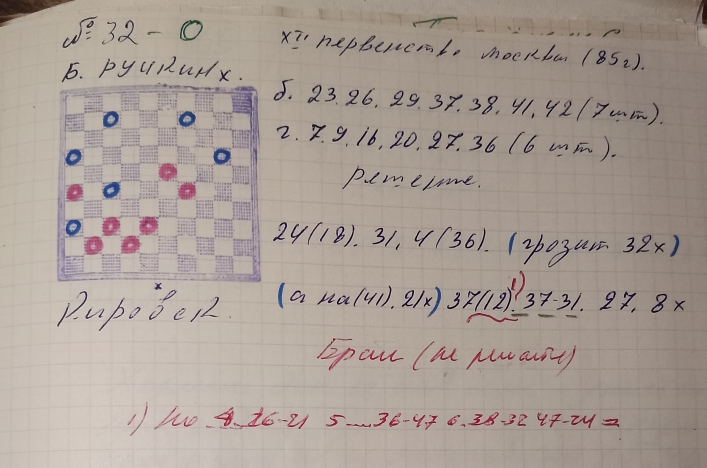 № 32 - 0
XI первенство Москвы (85г).
Б. РУЧКИН х.
б. 23. 26. 29. 37. 38. 41. 42 (7 шт).
г. 7. 9. 16. 20. 27. 36 (6 шт).
решение.
24(18). 31, 4(36). (грозит 32х)
(а на(41). 21х) 37(12)¹⁾. 37-31. 27. 8х
г. Киров
Брак (не решать)
1) Но 4. 26-21 5 ... 36-47 6. 38-32 47-24 =